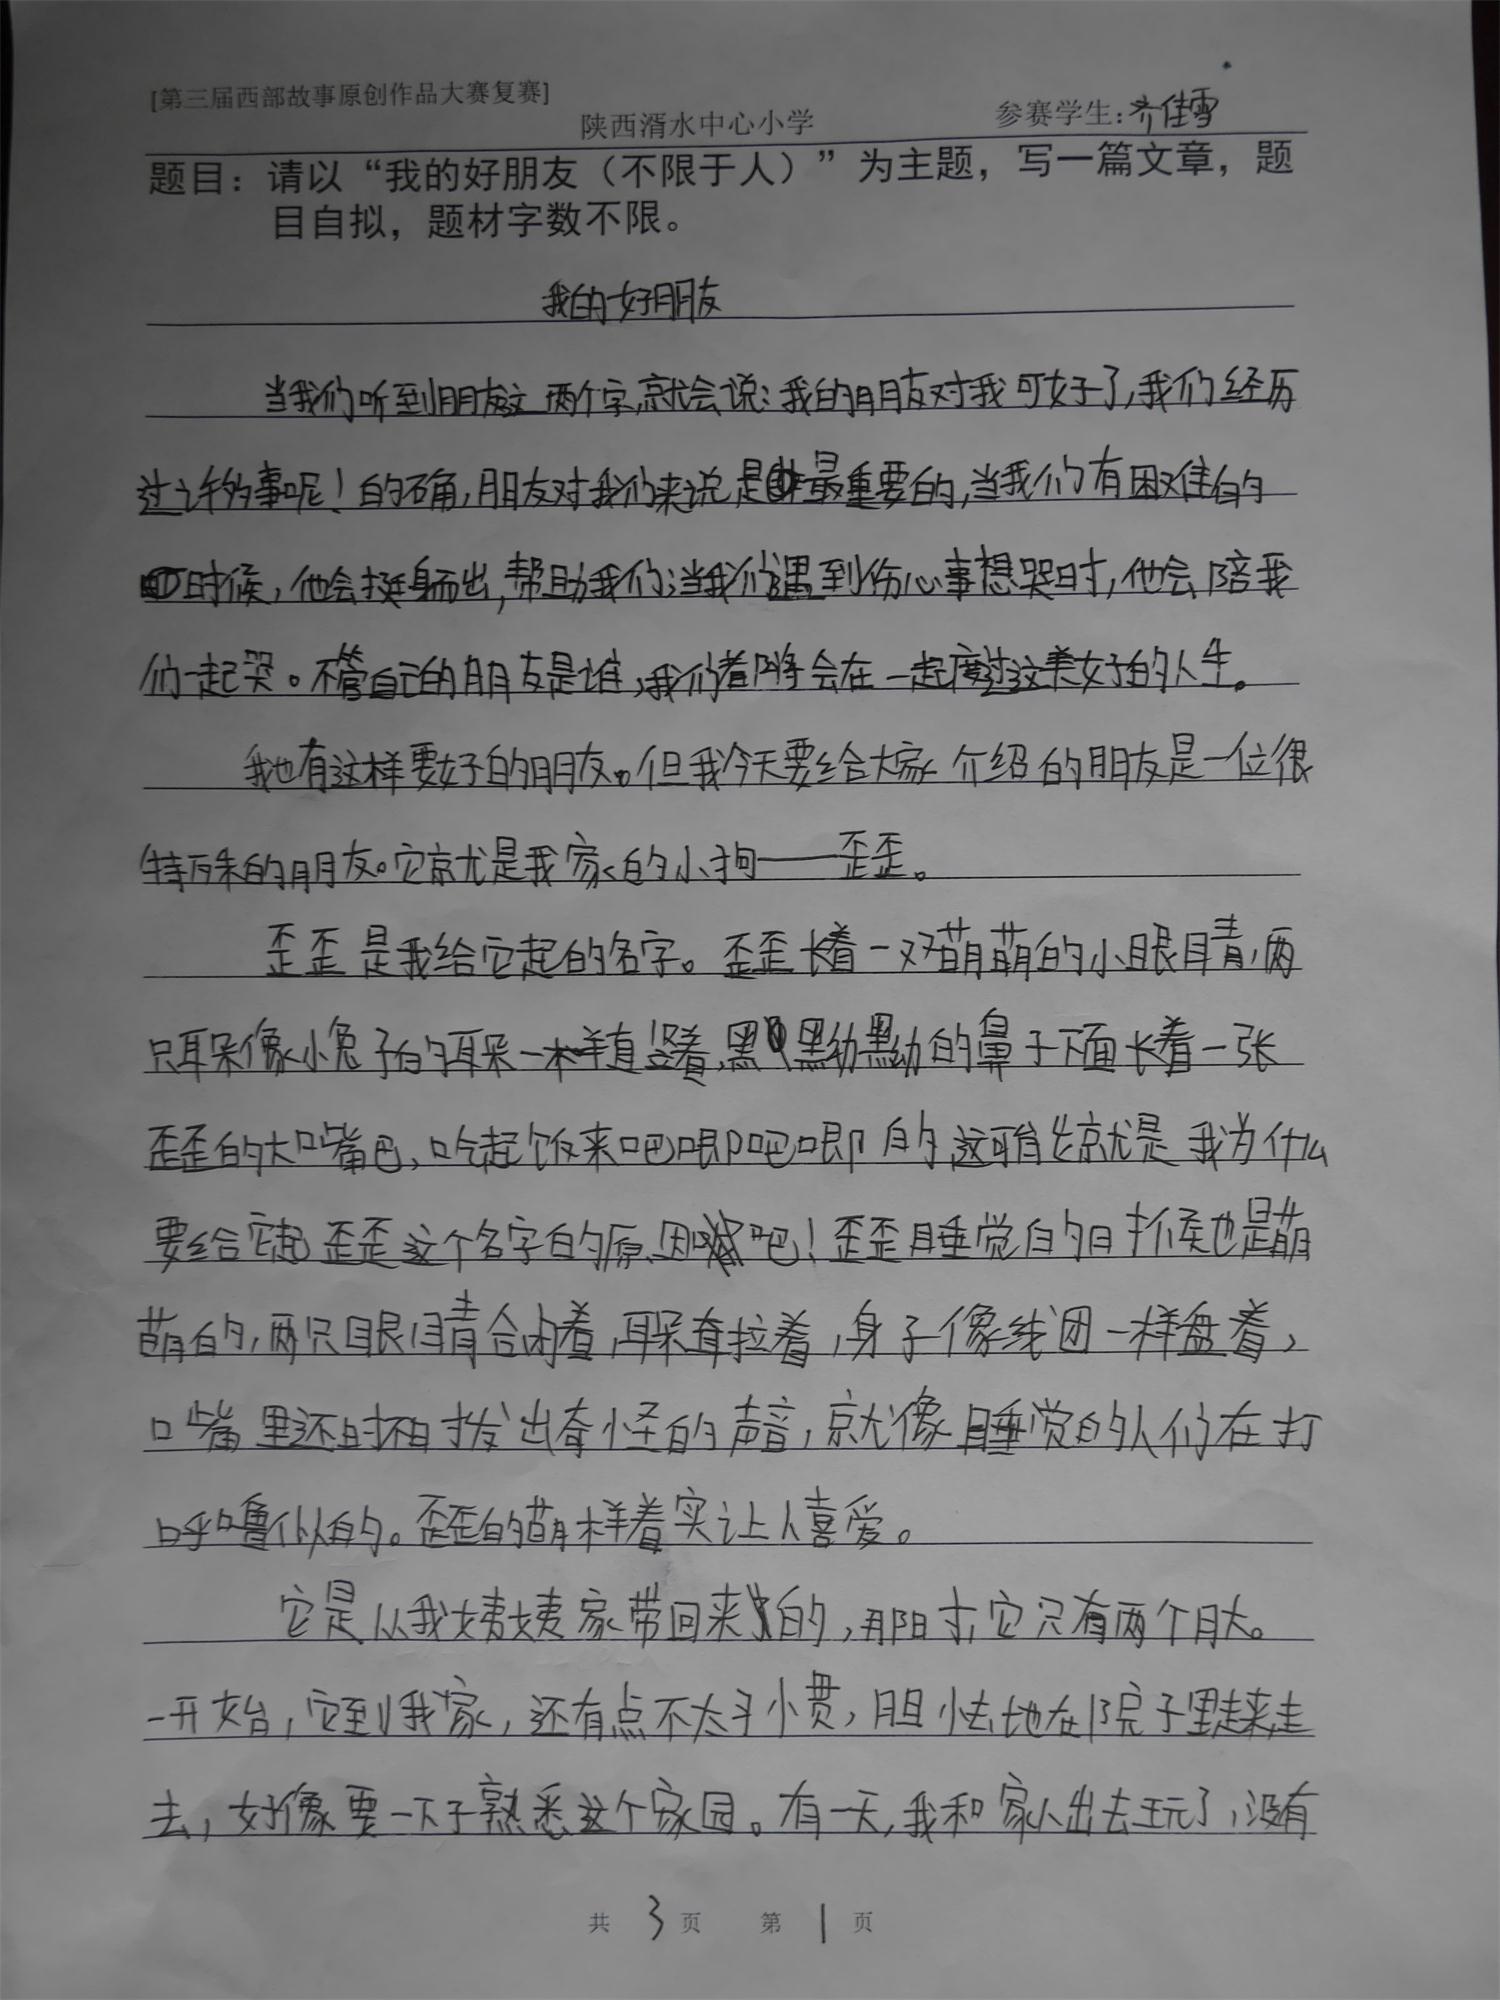 [第三届西部故事原创作品大赛复赛]
陕西湑水中心小学 参赛学生:齐佳雪
题目：请以“我的好朋友（不限于人）”为主题，写一篇文章，题
目自拟，题材字数不限。
我的好朋友
当我们听到朋友这两个字,就会说:我的朋友对我可好了,我们经历
过许多事呢!的确,朋友对我们来说是最重要的,当我们有困难的
时候,他会挺身而出,帮助我们;当我们遇到伤心事想哭时,他会陪我
们一起哭。不管自己的朋友是谁,我们都会在一起度过这美好的人生。
我也有这样要好的朋友。但我今天要给大家介绍的朋友是一位很
特殊的朋友。它就是我家的小狗——歪歪。
歪歪是我给它起的名字。歪歪长着一双萌萌的小眼睛,两
只耳朵像小兔子的耳朵一样直竖着,黑黝黑黝的鼻子下面长着一张
歪歪的大嘴巴,吃起饭来吧唧吧唧的,这可能就是我为什么
要给它起歪歪这个名字的原因吧!歪歪睡觉的时候也是萌
萌的,两只眼睛合闭着,耳朵耷拉着,身子像线团一样盘着,
嘴里还时不时发出奇怪的声音,就像睡觉的人们在打
呼噜似的。歪歪的萌样着实让人喜爱。
它是从我姨姨家带回来的,那时,它只有两个月大。
一开始,它到我家,还有点不太习惯,胆怯地在院子里走来走
去,好像要一下子熟悉这个家园。有一天,我和家人出去玩了,没有
共 3 页 第 1 页